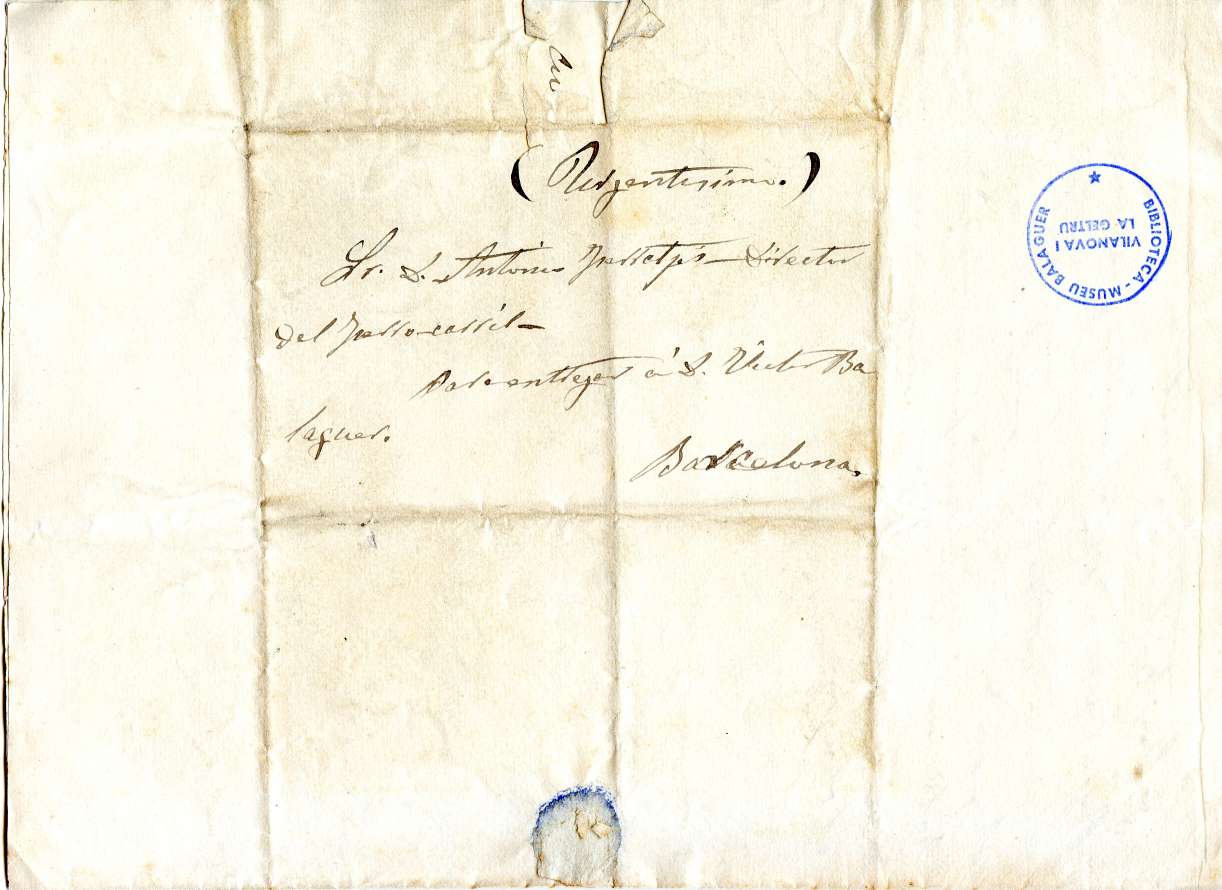 Cu
(Urgentisimo.)
Sr. D. Antonio Director
del ferro-carril—
Para entregar á D. Victor Ba
laguer.
Barcelona.
BIBLIOTECA - MUSEU BALAGUER
VILANOVA I
LA GELTRU